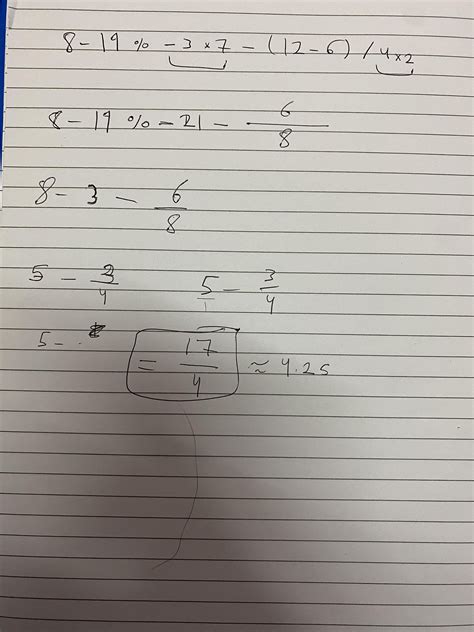 8 - 19 % - 3 × 7 - (12 - 6) / 4 × 2
8 - 19 % - 21 - 6/8
8 - 3 - 6/8
5 - 3/4    5/1 - 3/4
5 - = 17/4 ≈ 4.25